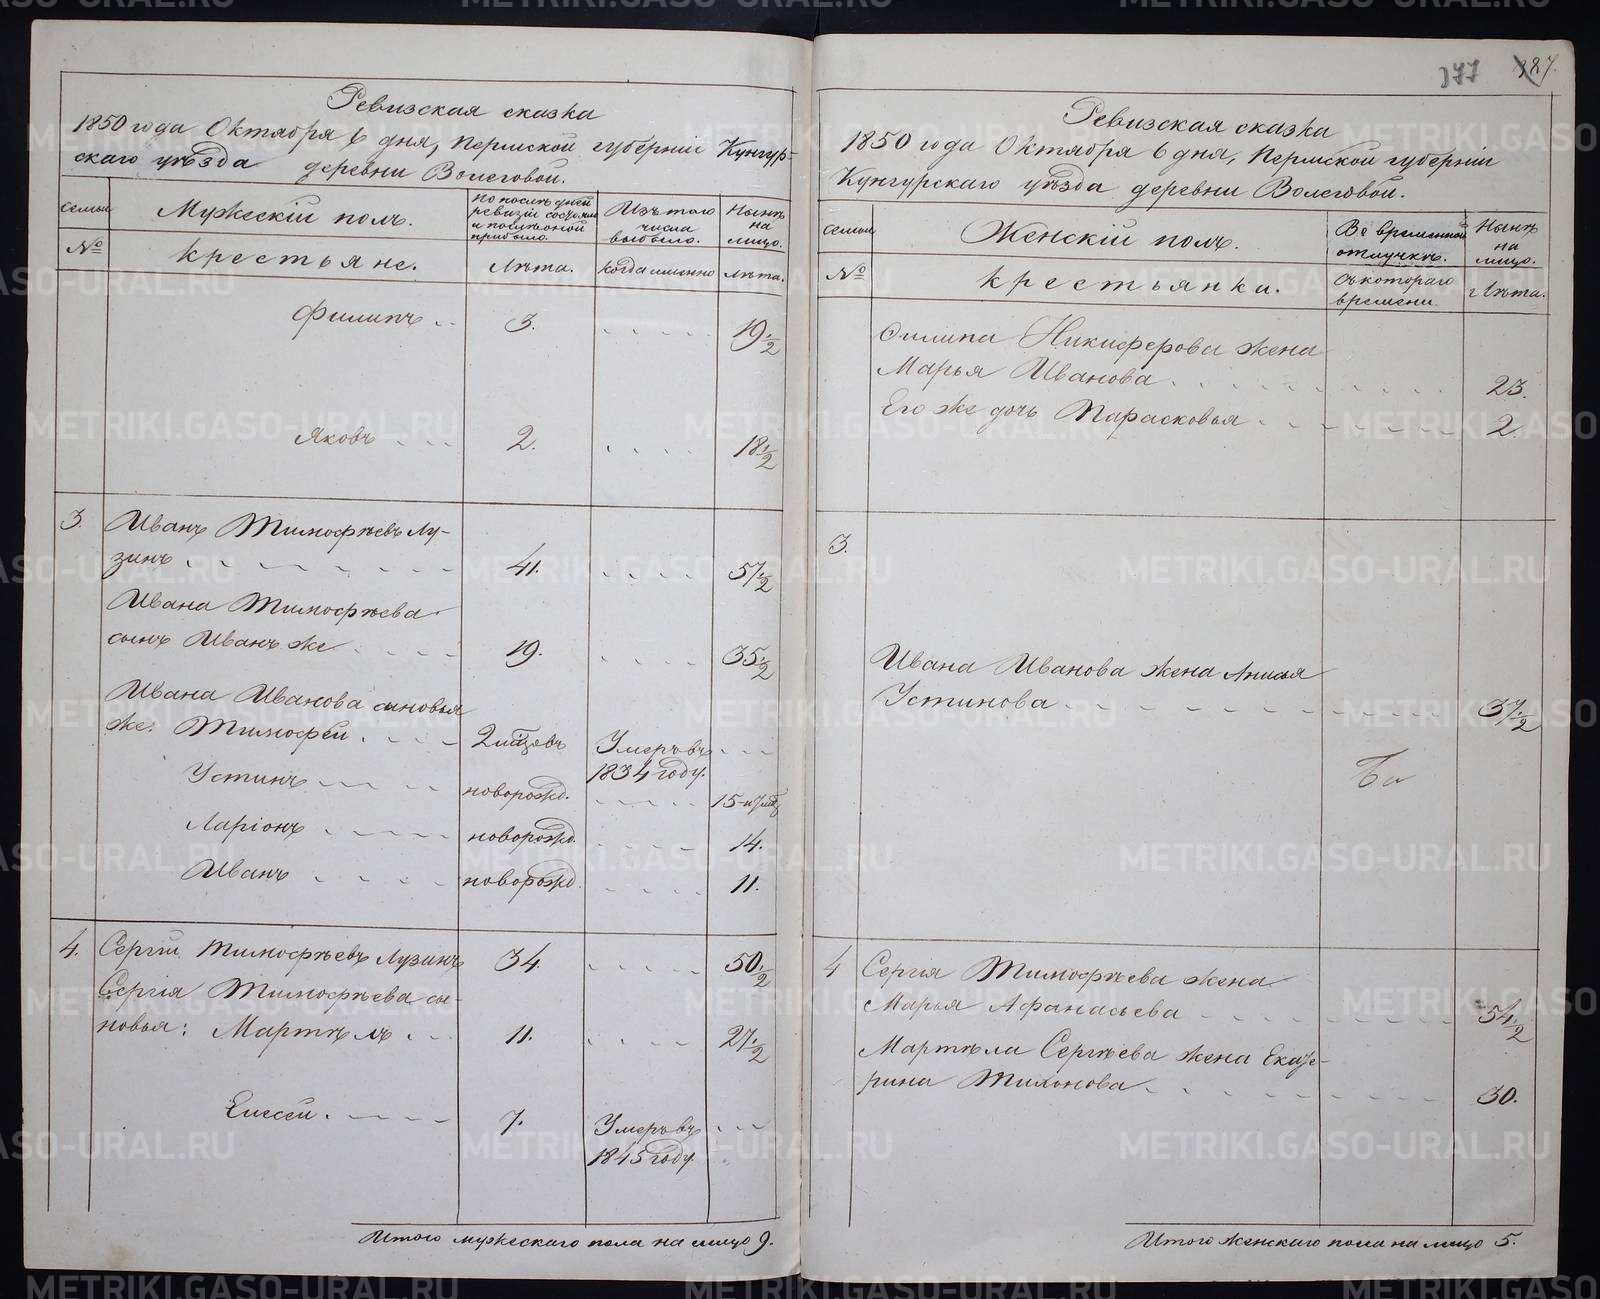 377 387.
Ревизская сказка
1850 года Октября 6 дня, Пермской губернiи Кунгур-
скаго уѣзда деревни Волеговой.
семьи
№
Мужескiй полъ.
крестьяне.
По послѣдней
ревизiи состояло
и послѣ оной
прибыло.
Лѣта.
Изъ того
числа
выбыло.
когда именно
Нынѣ
на
лицо.
лѣта.
Филипъ 3. 19 1/2
Яковъ 2. 18 1/2
3. Иванъ Тимофѣевъ Лу-
зинъ 41. 57 1/2
Ивана Тимофѣева
сынъ Иванъ же 19. 35 1/2
Ивана Иванова сыновья
же: Тимофей 2 мѣсцовъ Умеръ въ
1834 году.
Устинъ новорожд. 15 и 7 мѣс
Ларiонъ новорожд. 14.
Иванъ новорожд. 11.
4. Сергiй Тимофѣевъ Лузинъ 34. 50 1/2
Сергiя Тимофѣева сы-
новья: Мартѣлъ 11. 27 1/2
Елисей. 7. Умеръ въ
1845 году.
Итого мужескаго пола на лицо 9.
Ревизская сказка
1850 года Октября 6 дня, Пермской губернiи
Кунгурскаго уѣзда деревни Волеговой.
семьи
№
Женскiй полъ.
крестьянки.
Во временной
отлучкѣ.
съ котораго
времени.
Нынѣ
на
лицо.
Лѣта.
Филипа Никиферова жена
Марья Иванова 23.
Его же дочь Парасковья 2.
3.
Ивана Иванова жена Анисья
Устинова 37 1/2
Ба
4 Сергiя Тимофѣева жена
Марья Афанасьева 54 1/2
Мартѣла Сергѣева жена Екате-
рина Тихонова 30.
Итого женскаго пола на лицо 5.
METRIKI.GASO-URAL.RU